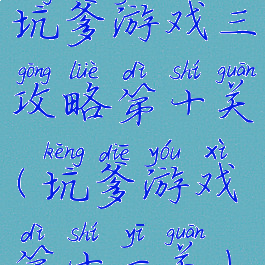 坑爹游戏三
gōng lüè dì shí guān
攻略第十关
kēng diē yóu xì
(坑爹游戏
dì shí yī guān
第十一关)